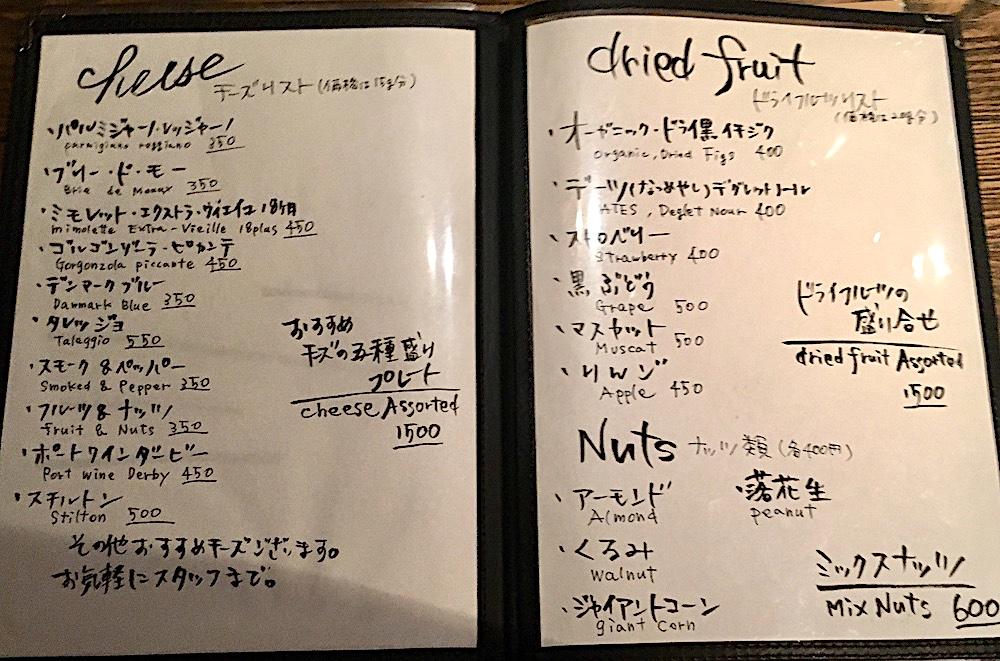 cheese
チーズリスト(価格は15g分)
・パルミジャーノ・レッジャーノ
parmigiano reggiano 350
・ブリー・ド・モー
Brie de Meaux 350
・ミモレット・エクストラ・ヴィエイユ 18ヶ月
mimolette Extra-Vieille 18plus 450
・ゴルゴンゾーラ・ピカンテ
Gorgonzola piccante 450
・デンマークブルー
Danmark Blue 350
・タレッジョ
Taleggio 550
・スモーク&ペッパー
Smoked & Pepper 350
・フルーツ&ナッツ
fruit & Nuts 350
・ポートワインダービー
Port wine Derby 450
・スチルトン
Stilton 500
おすすめ
チーズの五種盛り
プレート
cheese Assorted
1500
その他おすすめチーズございます。
お気軽にスタッフまで。
dried fruit
ドライフルーツリスト
(価格は20g分)
・オーガニック・ドライ黒イチジク
Organic, Dried Figs 400
・デーツ(なつめやし)デグレットノール
DATES, Deglet Nour 400
・ストロベリー
Strawberry 400
・黒ぶどう
Grape 500
・マスカット
Muscat 500
・りんご
Apple 450
ドライフルーツの
盛り合せ
dried fruit Assorted
1500
Nuts ナッツ類(各400円)
・アーモンド
Almond
・落花生
peanut
・くるみ
walnut
・ジャイアントコーン
giant corn
ミックスナッツ
Mix Nuts 600